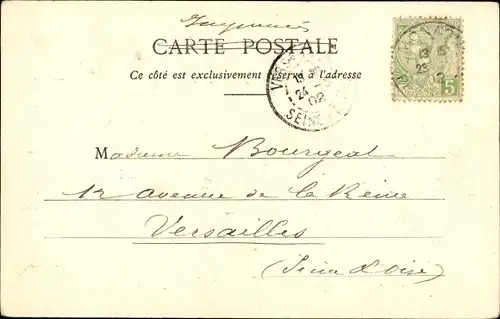 Imprimés
CARTE POSTALE
Ce côté est exclusivement réservé à l'adresse
VERSAILLES
13
24
02
SEINE
13
23
5
Madame Bourgeat
12 avenue de la Reine
Versailles
(Seine & Oise)